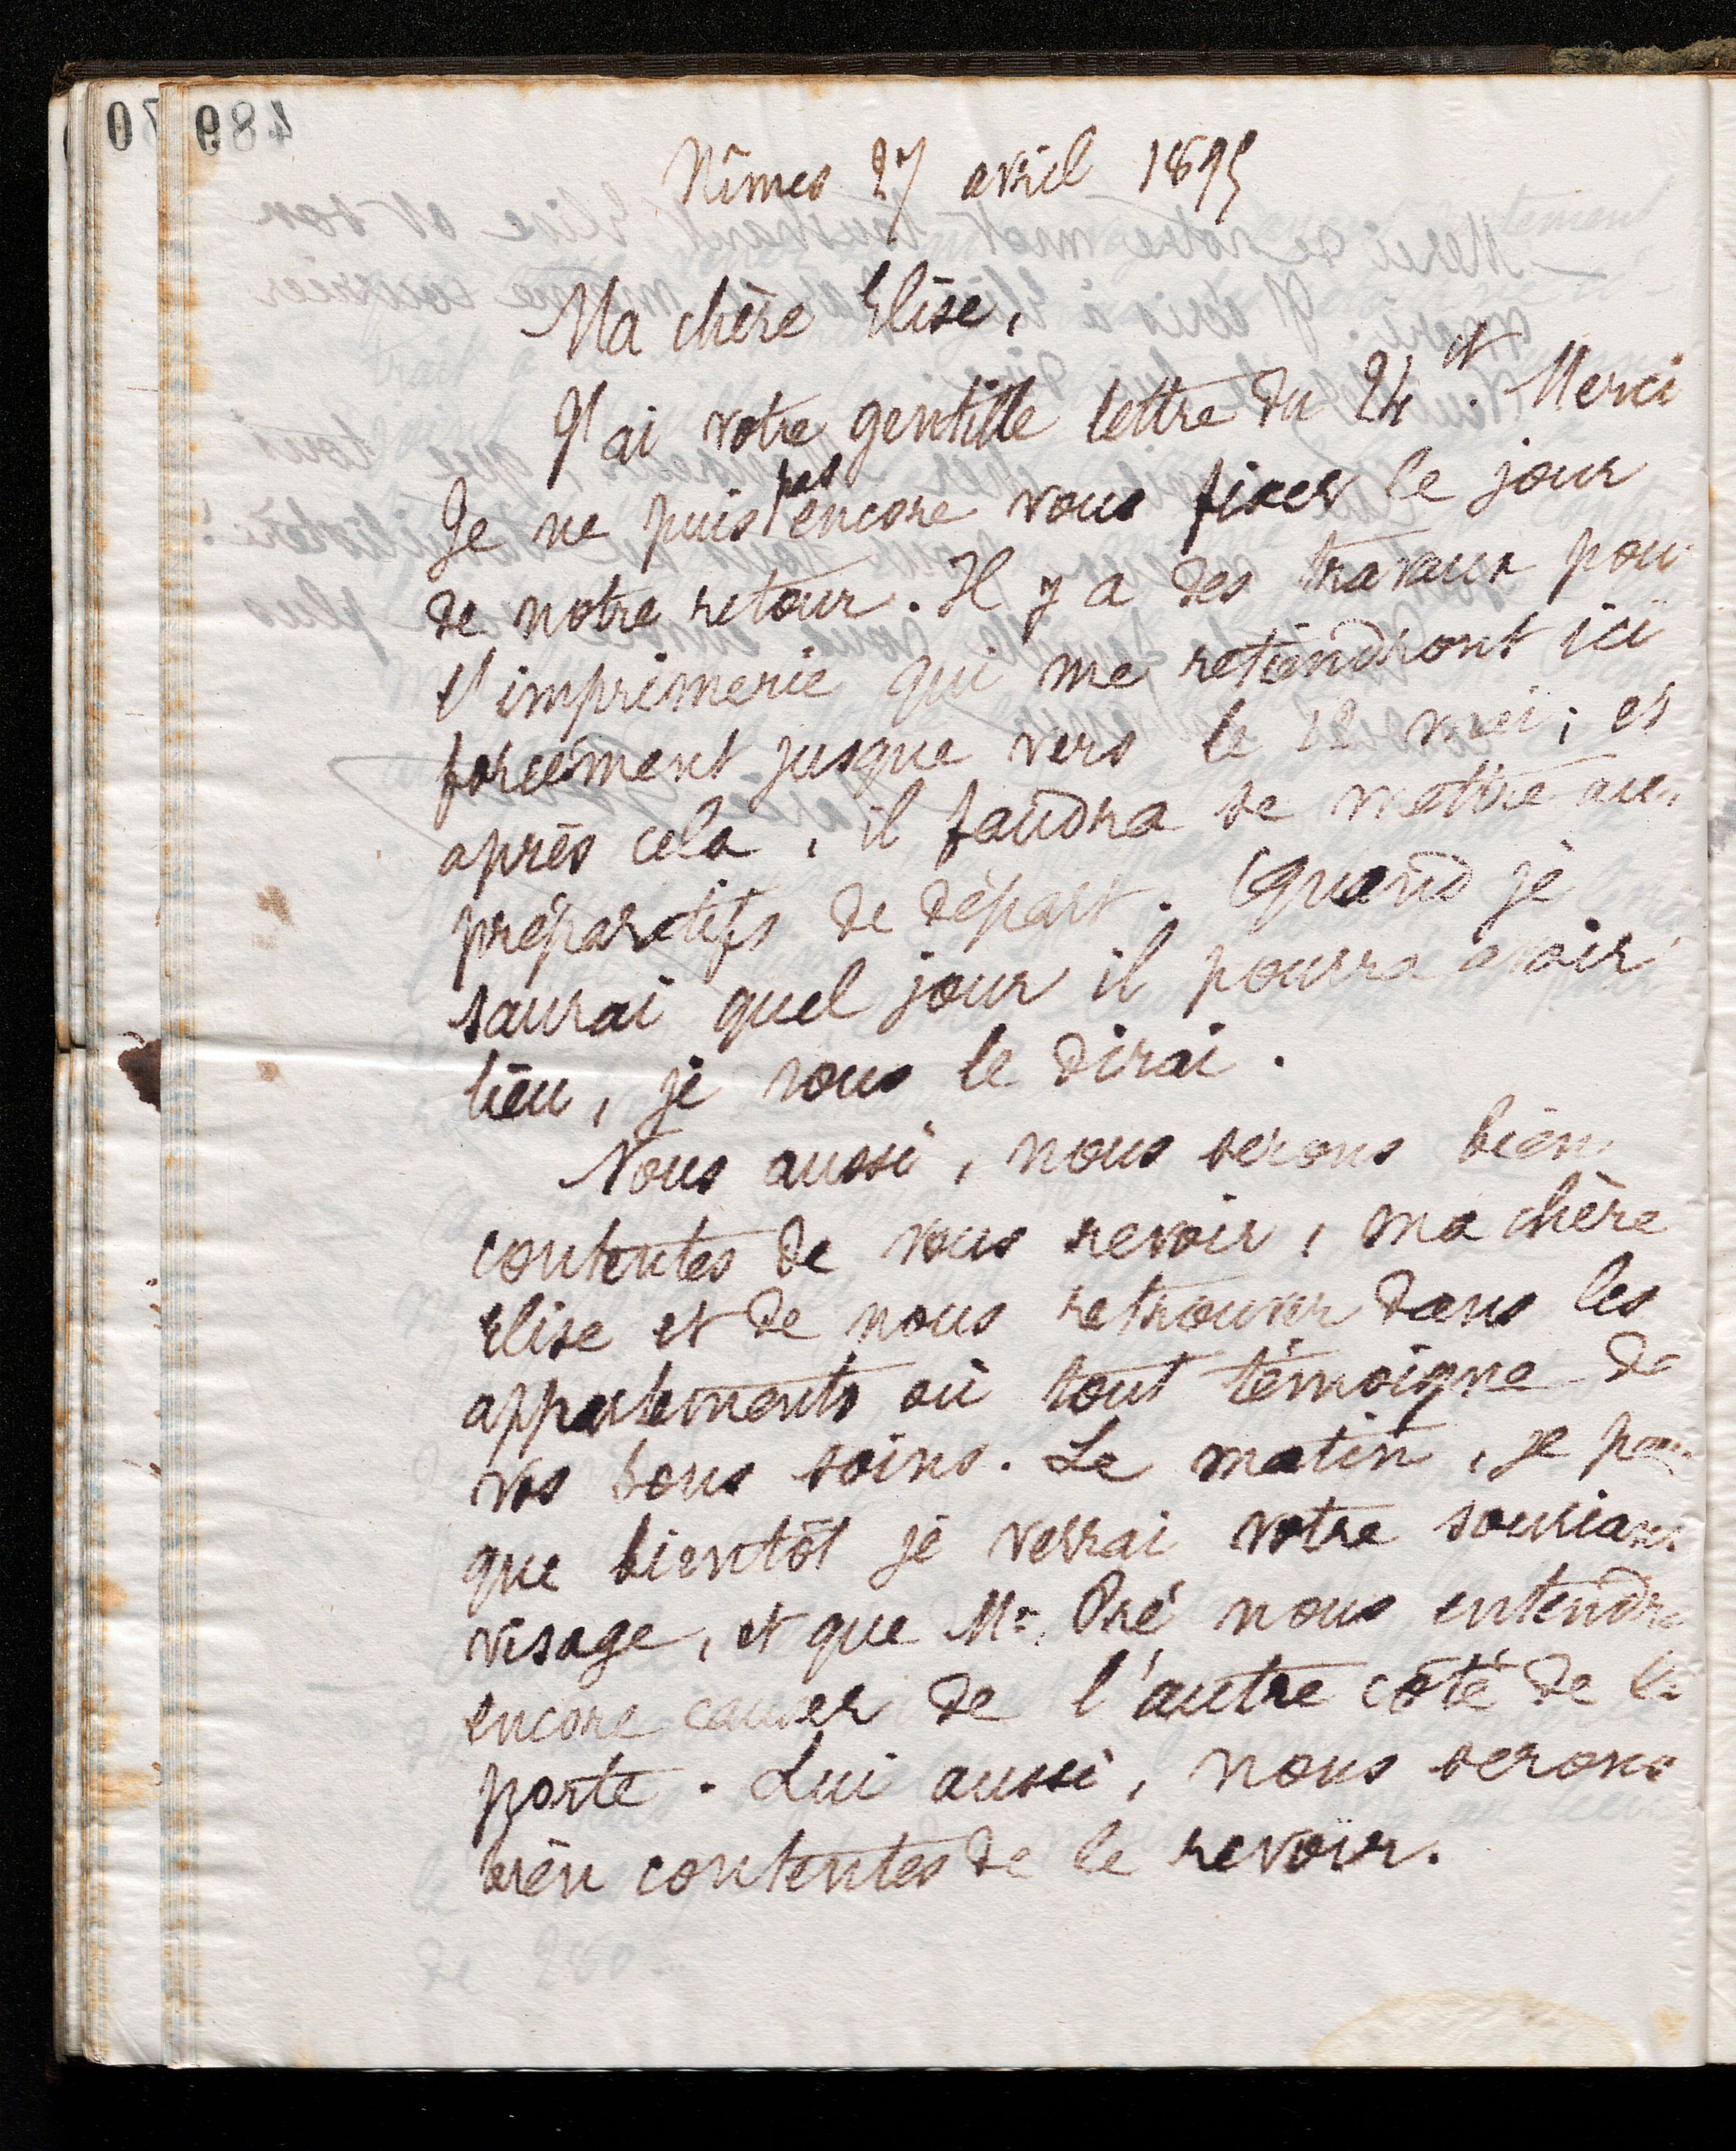 Nîmes 27 avril 1895
Ma chère Elise,
J'ai votre gentille lettre du 24 ct. Merci
Je ne puis pas encore vous fixer le jour
de notre retour. Il y a des travaux pour
l'imprimerie qui me retiendront ici
forcément jusque vers le 12 mai; et
après cela, il faudra se mettre aux
préparatifs de départ. Quand je
saurai quel jour il pourra avoir
lieu, je vous le dirai.
Nous aussi, nous serons bien
contentes de vous revoir, ma chère
Elise et de nous retrouver dans les
appartements où tout témoigne de
vos bons soins. Le matin, je
que bientôt je verrai votre souriant
visage, et que Mr. Pré nous entendra
encore causer de l'autre côté de la
porte. Lui aussi, nous serons
bien contentes de le revoir.